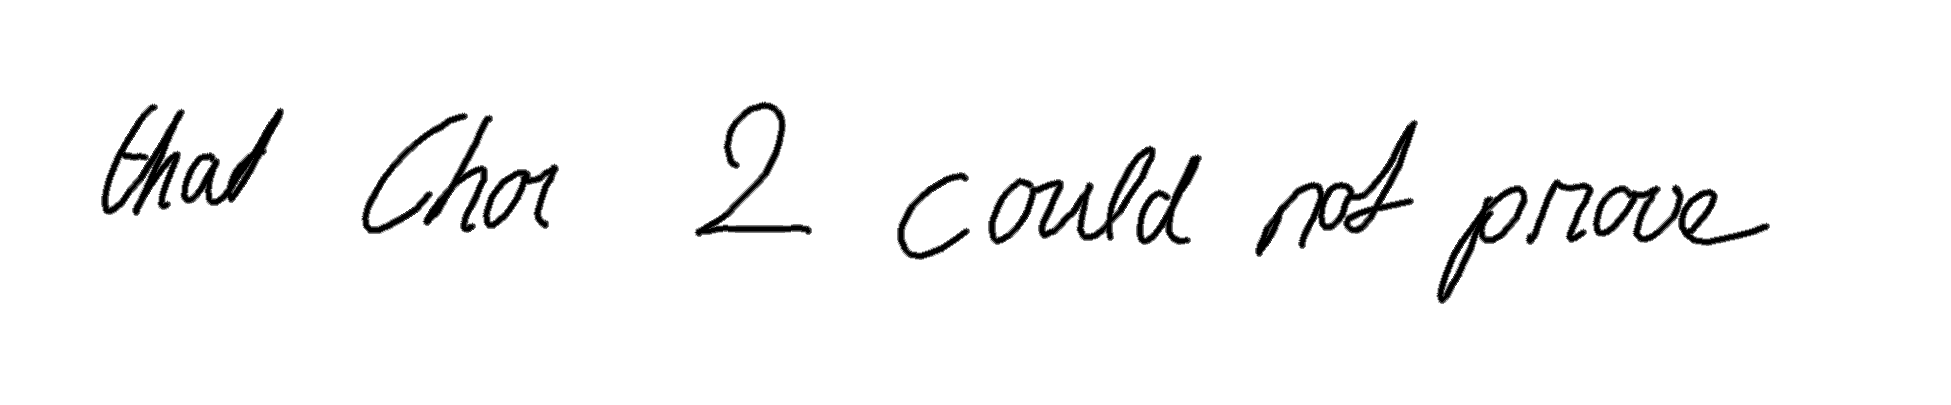 that Chor 2 could not prove